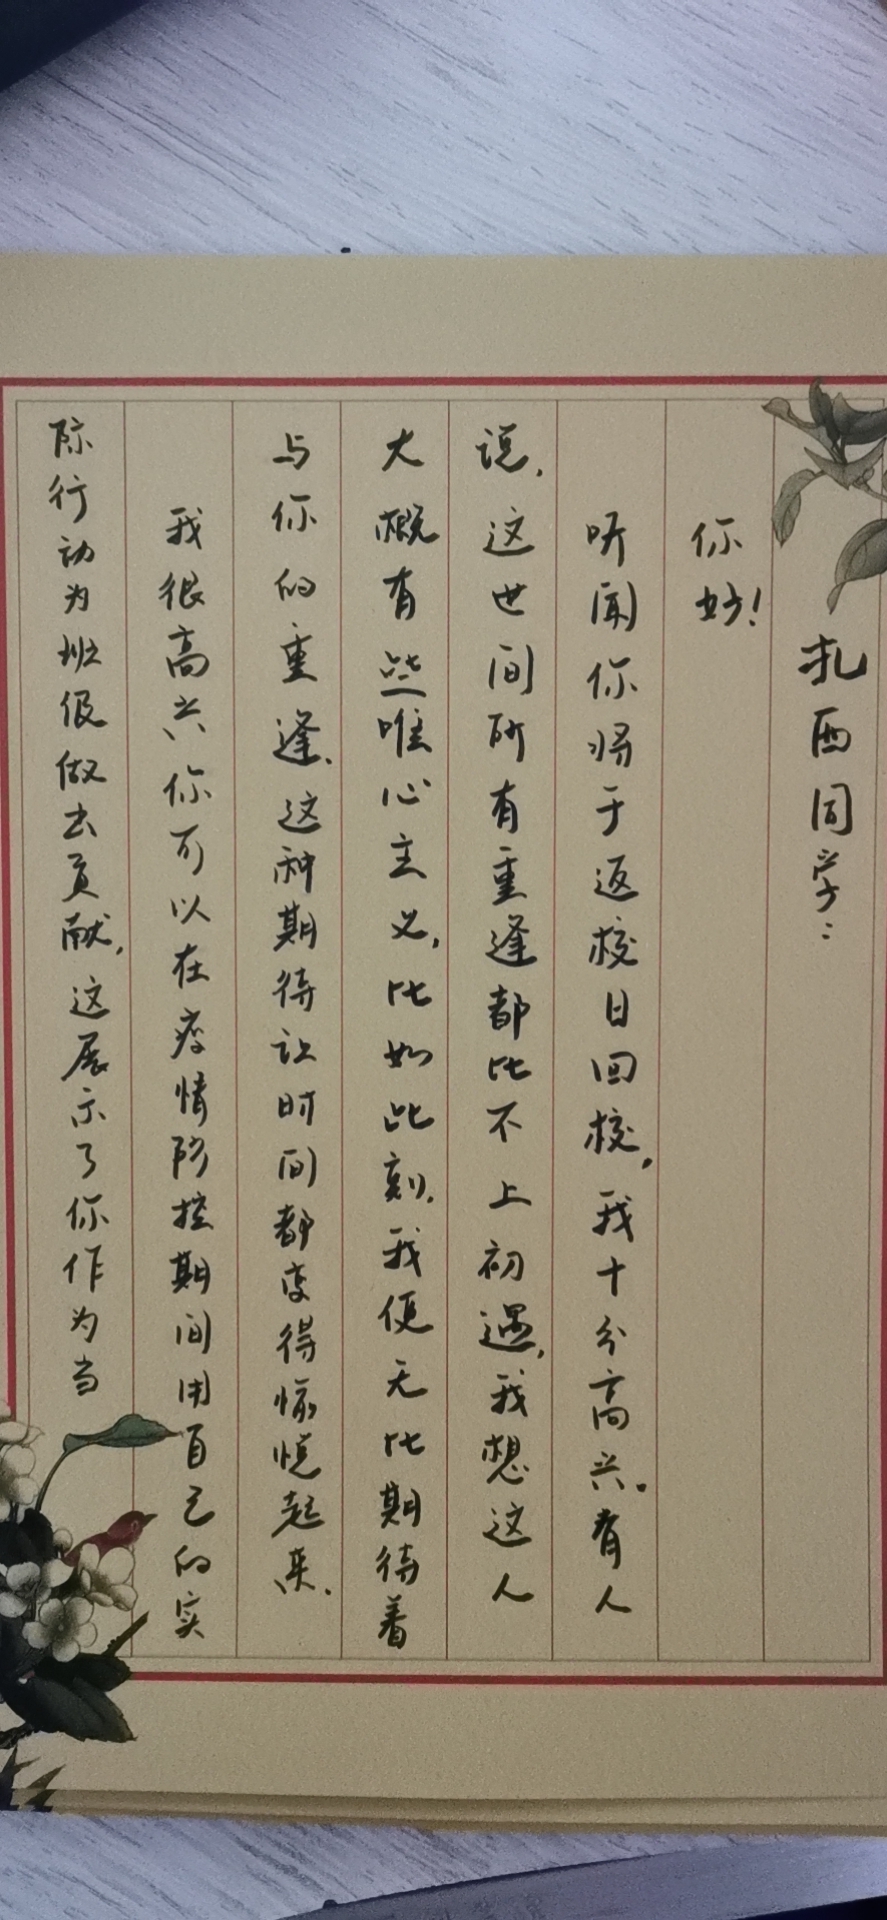 扎西同学：
你好！
听闻你将于返校日回校，我十分高兴。有人
说，这世间所有重逢都比不上初遇，我想这人
大概有些唯心主义，比如此刻，我便无比期待着
与你的重逢、这种期待让时间都变得愉悦起来.
我很高兴你可以在疫情防控期间用自己的实
际行动为班级做去贡献，这展示了你作为当